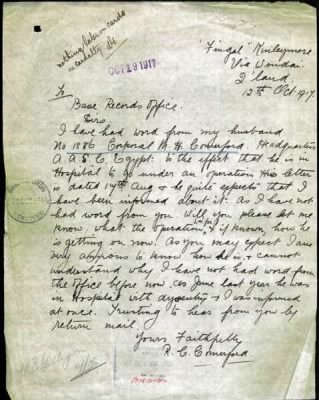 nothing later on cards
OCT 19 1917
'Fingal' Kinleymore
Via Wondai
Q'land
12th Oct 1917.
To
Base Records Office.
Sirs
I have had word from my husband
No 1886 Corporal M. H. Comerford. Headquarters
A. A. S. C. Egypt. to the effect that he is in
Hospital to go under an operation. His letter
is dated 17th Aug & he quite expects that I
have been informed about it. As I have not
had word from you Will you please let me
know what the operation is for, & if known how he
is getting on now. As you may expect I am
very anxious to know how he is, & cannot
understand why I have not had word from
the office before now, as June last year he was
in Hospital with dysentry & I was informed
at once. Trusting to hear from you by
return mail.
Yours Faithfully
R. C. Comerford.